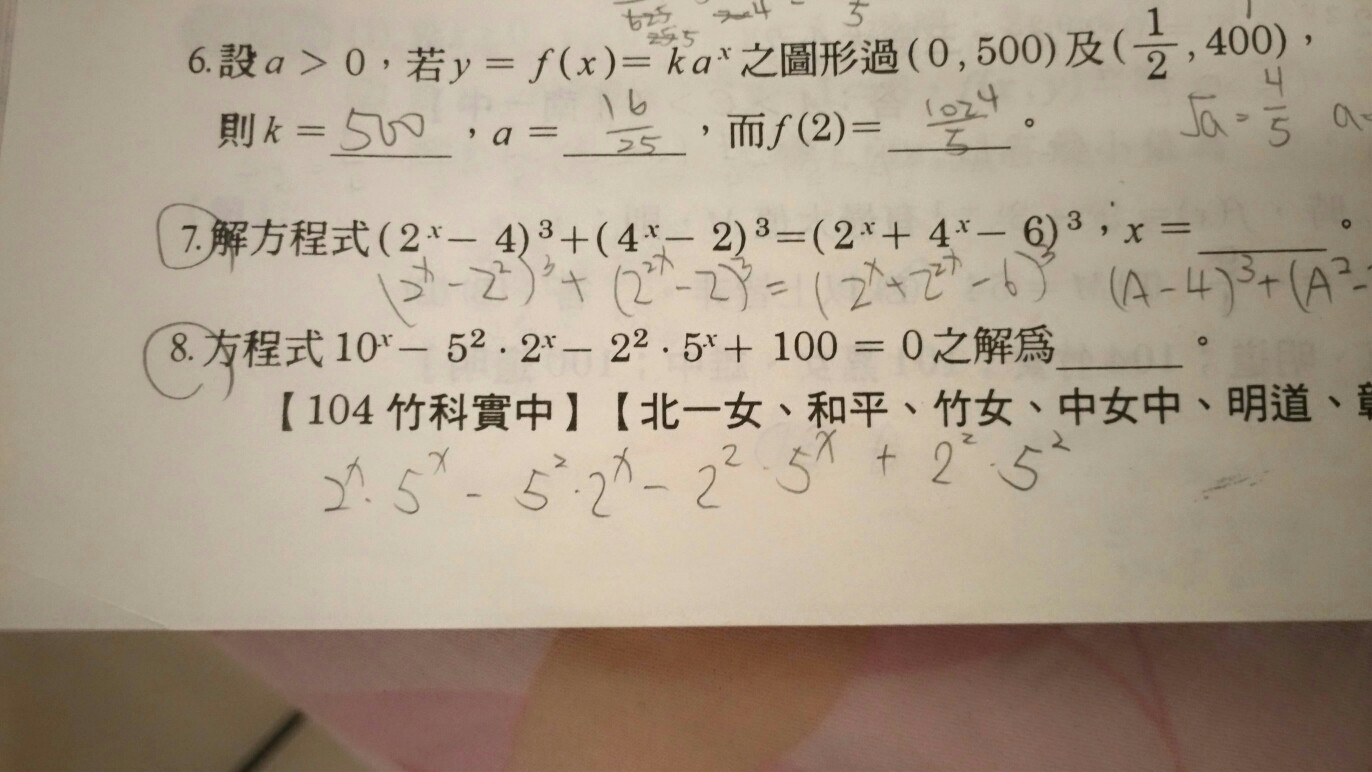 625 4 5
25 5
6.設a > 0，若y = f(x)= ka^x 之圖形過(0,500)及(1/2,400)，
則k = 500，a = 16/25，而f(2)= 1024/5。 √a = 4/5 a=
7.解方程式(2^x − 4)^3+(4^x − 2)^3=(2^x + 4^x − 6)^3，x = ______。
(2^x − 2^2)^3 + (2^2x − 2)^3 = (2^x + 2^2x − 6)^3 (A − 4)^3 + (A^2 −
8.方程式10^x − 5^2 · 2^x − 2^2 · 5^x + 100 = 0之解為______。
【104 竹科實中】【北一女、和平、竹女、中女中、明道、
2^x · 5^x − 5^2 · 2^x − 2^2 · 5^x + 2^2 · 5^2